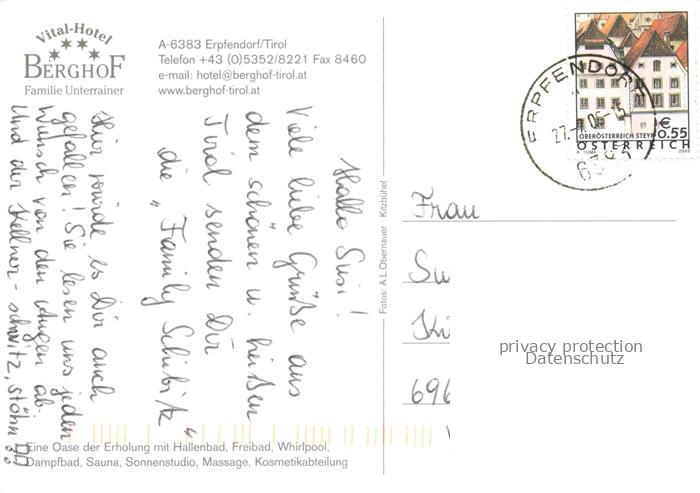 Vital-Hotel
BERGHOF
Familie Unterrainer
A-6383 Erpfendorf/Tirol
Telefon +43 (0)5352/8221 Fax 8460
e-mail: hotel@berghof-tirol.at
www.berghof-tirol.at
Hallo Susi!
Viele liebe Grüße aus
dem schönen u. heißen
Tirol senden Dir
die "Family Schibitz"
Hier würde es Dir auch
gefallen! Sie lesen uns jeden
Wunsch von den Augen ab.
Und der Kellner - schwitz, stöhn!!
Eine Oase der Erholung mit Hallenbad, Freibad, Whirlpool,
Dampfbad, Sauna, Sonnenstudio, Massage, Kosmetikabteilung
Fotos: A.L.Obernauer Kitzbühel
ERPFENDORF
€ 0.55
OBERÖSTERREICH STEYR
ÖSTERREICH
Frau
Su
Ki
696
privacy protection
Datenschutz